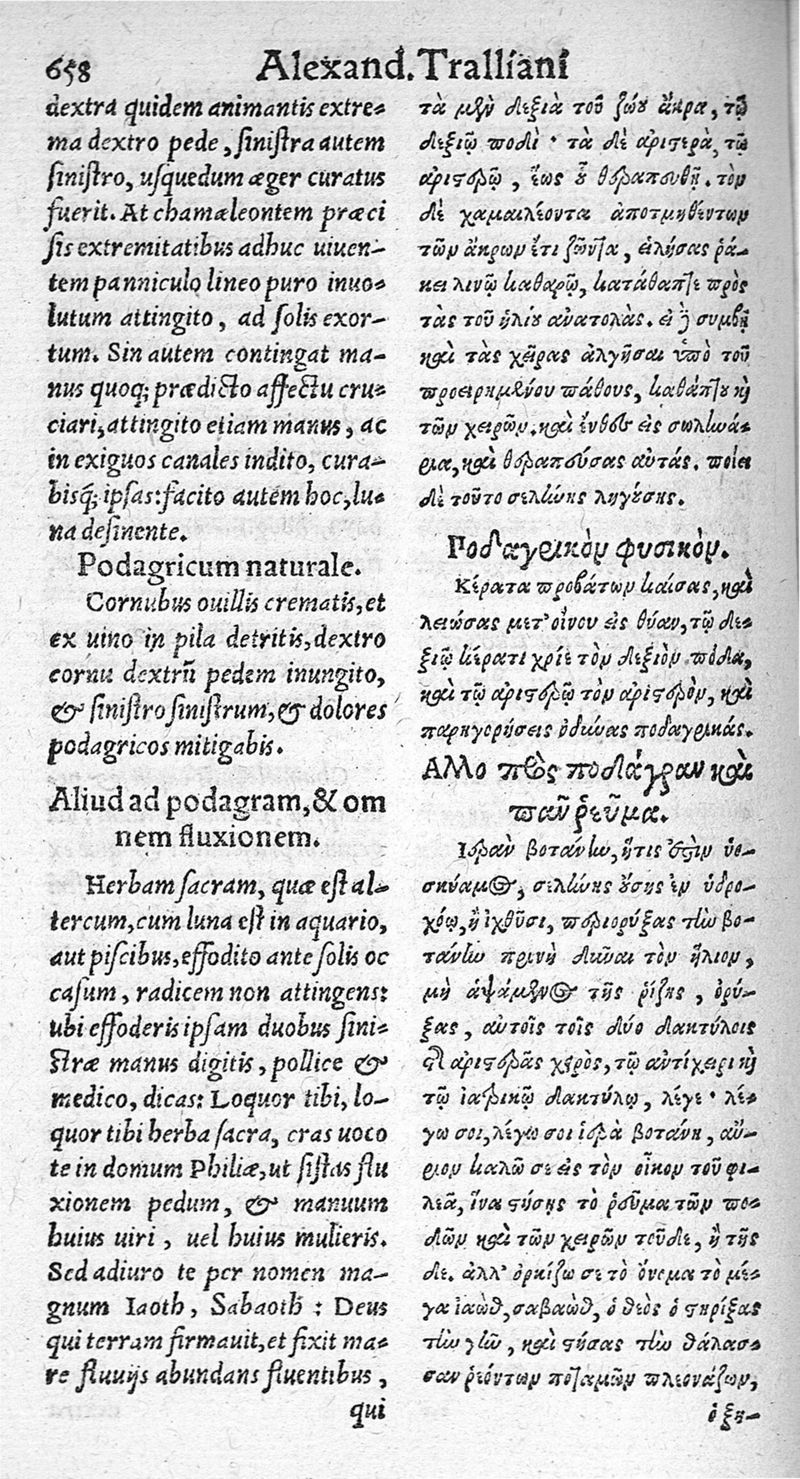 658 Alexand. Tralliani
dextra quidem animantis extre-
ma dextro pede, sinistra autem
sinistro, usquedum æger curatus
fuerit. At chamæleontem præci
sis extremitatibus adhuc uiuen-
tem panniculo lineo puro inuo-
lutum attingito, ad solis exor-
tum. Sin autem contingat ma-
nus quoq; prædicto affectu cru-
ciari, attingito etiam manus, ac
in exiguos canales indito, cura-
bisq́; ipsas: facito autem hoc, lu-
na desinente.
Podagricum naturale.
Cornubus ouillis crematis, et
ex uino in pila detritis, dextro
cornu dextrū pedem inungito,
& sinistro sinistrum, & dolores
podagricos mitigabis.
Aliud ad podagram, & om
nem fluxionem.
Herbam sacram, quæ est al-
tercum, cum luna est in aquario,
aut piscibus, effodito ante solis oc
casum, radicem non attingens:
ubi effoderis ipsam duobus sini-
stræ manus digitis, pollice &
medico, dicas: Loquor tibi, lo-
quor tibi herba sacra, cras uoco
te in domum Philiæ, ut sistas flu
xionem pedum, & manuum
huius uiri, uel huius mulieris.
Sed adiuro te per nomen ma-
gnum Iaoth, Sabaoth: Deus
qui terram firmauit, et fixit ma-
re fluuijs abundans fluentibus,
qui
τὰ μὲν δεξιὰ τοῦ ζώου ἄκρα, τῷ
δεξιῷ ποδὶ· τὰ δὲ ἀριστερὰ, τῷ
ἀριστερῷ, ἕως οὗ θεραπευθῇ. τὸν
δὲ χαμαιλέοντα ἀποτμηθέντων
τῶν ἄκρων ἔτι ζῶντα, εἱλήσας ῥά-
κει λινῷ καθαρῷ, κατάθαπτε πρὸς
τὰς τοῦ ἡλίου ἀνατολὰς. εἰ δὲ συμβῇ
καὶ τὰς χεῖρας ἀλγῆσαι ὑπὸ τοῦ
προειρημένου πάθους, καθάπτου καὶ
τῶν χειρῶν. καὶ ἔνθου εἰς σωληνά-
ρια, καὶ θεραπεύσας αὐτάς. ποίει
δὲ τοῦτο σελήνης ληγούσης.
Ποδαγρικὸν φυσικὸν.
Κέρατα προβάτων καύσας, καὶ
λειώσας μετ' οἴνου εἰς θύαν, τῷ δε-
ξιῷ κέρατι χρίε τὸν δεξιὸν πόδα,
καὶ τῷ ἀριστερῷ τὸν ἀριστερὸν, καὶ
παρηγορήσεις ὀδύνας ποδαγρικάς.
Αλλο πρὸς ποδάγραν καὶ
πᾶν ῥεῦμα.
Ιερὰν βοτάνην, ἥτις ἐστὶν ὑο-
σκύαμος, σελήνης οὔσης ἐν ὑδρο-
χόῳ, ἢ ἰχθύσι, περιορύξας τὴν βο-
τάνην πρινὴ δῦναι τὸν ἥλιον,
μὴ ἁψάμενος τῆς ῥίζης, ὀρύ-
ξας, αὐτοῖς τοῖς δύο δακτύλοις
τῆς ἀριστερᾶς χειρὸς, τῷ ἀντίχειρι καὶ
τῷ ἰατρικῷ δακτύλῳ, λέγε· λέ-
γω σοι, λέγω σοι ἱερὰ βοτάνη, αὔ-
ριον καλῶ σε εἰς τὸν οἶκον τοῦ φι-
λεᾶ, ἵνα στήσης τὸ ῥεῦμα τῶν πο-
δῶν καὶ τῶν χειρῶν τοῦδε, ἢ τῆς
δε. ἀλλ' ὁρκίζω σε τὸ ὄνομα τὸ μέ-
γα ἰαὼθ, σαβαὼθ, ὁ θεὸς ὁ στηρίξας
τὴν γῆν, καὶ στήσας τὴν θάλασ-
σαν ῥεόντων ποταμῶν πλεονάζων,
ὁ ξη-